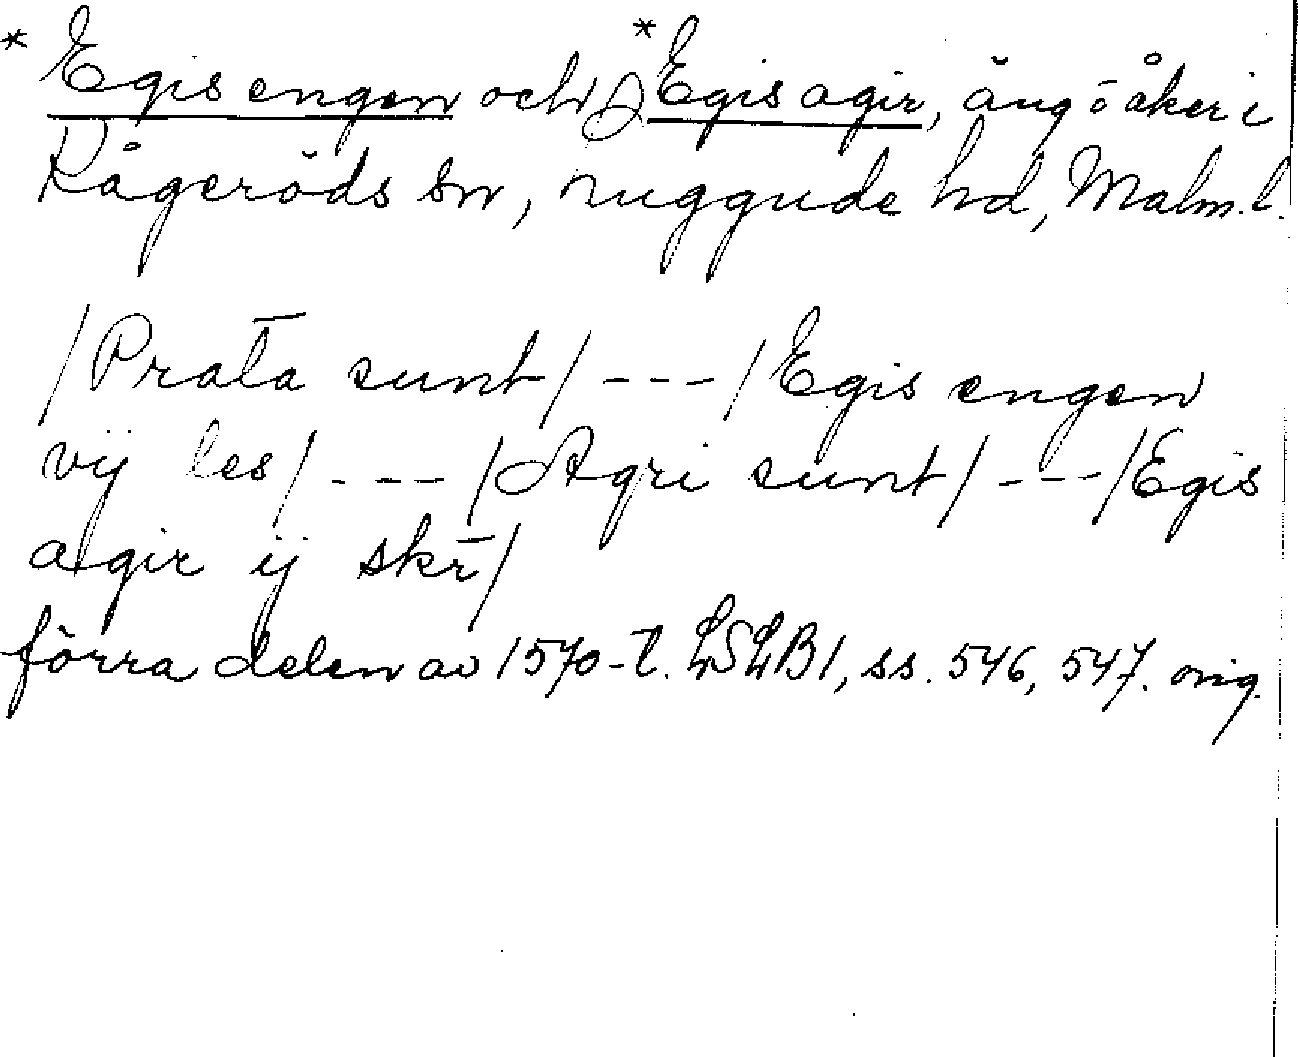 * Egis engen och * Egis agir, äng o åker i
Kågeröds sn, Luggude hd, Malm. l.
/Prata sunt/ --- /Egis engen
vij les/ --- /Agri sunt/ --- /Egis
agir ij skr̄/
förra delen av 1570-t. LSLB1, ss. 546, 547. orig.